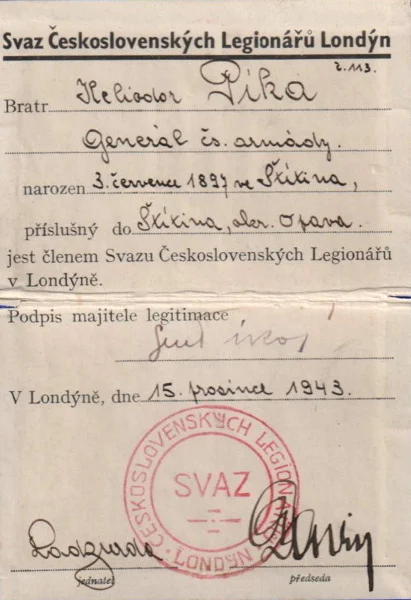 Svaz Československých Legionářů Londýn
č. 113.
Bratr Heliodor Píka
Generál čs. armády.
narozen 3. července 1897 ve Štítina,
příslušný do Štítina, okr. Opava.
jest členem Svazu Československých Legionářů
v Londýně.
Podpis majitele legitimace
V Londýně, dne 15. prosince 1943.
ČESKOSLOVENSKÝCH LEGIONÁŘŮ
SVAZ
LONDÝN
jednatel předseda